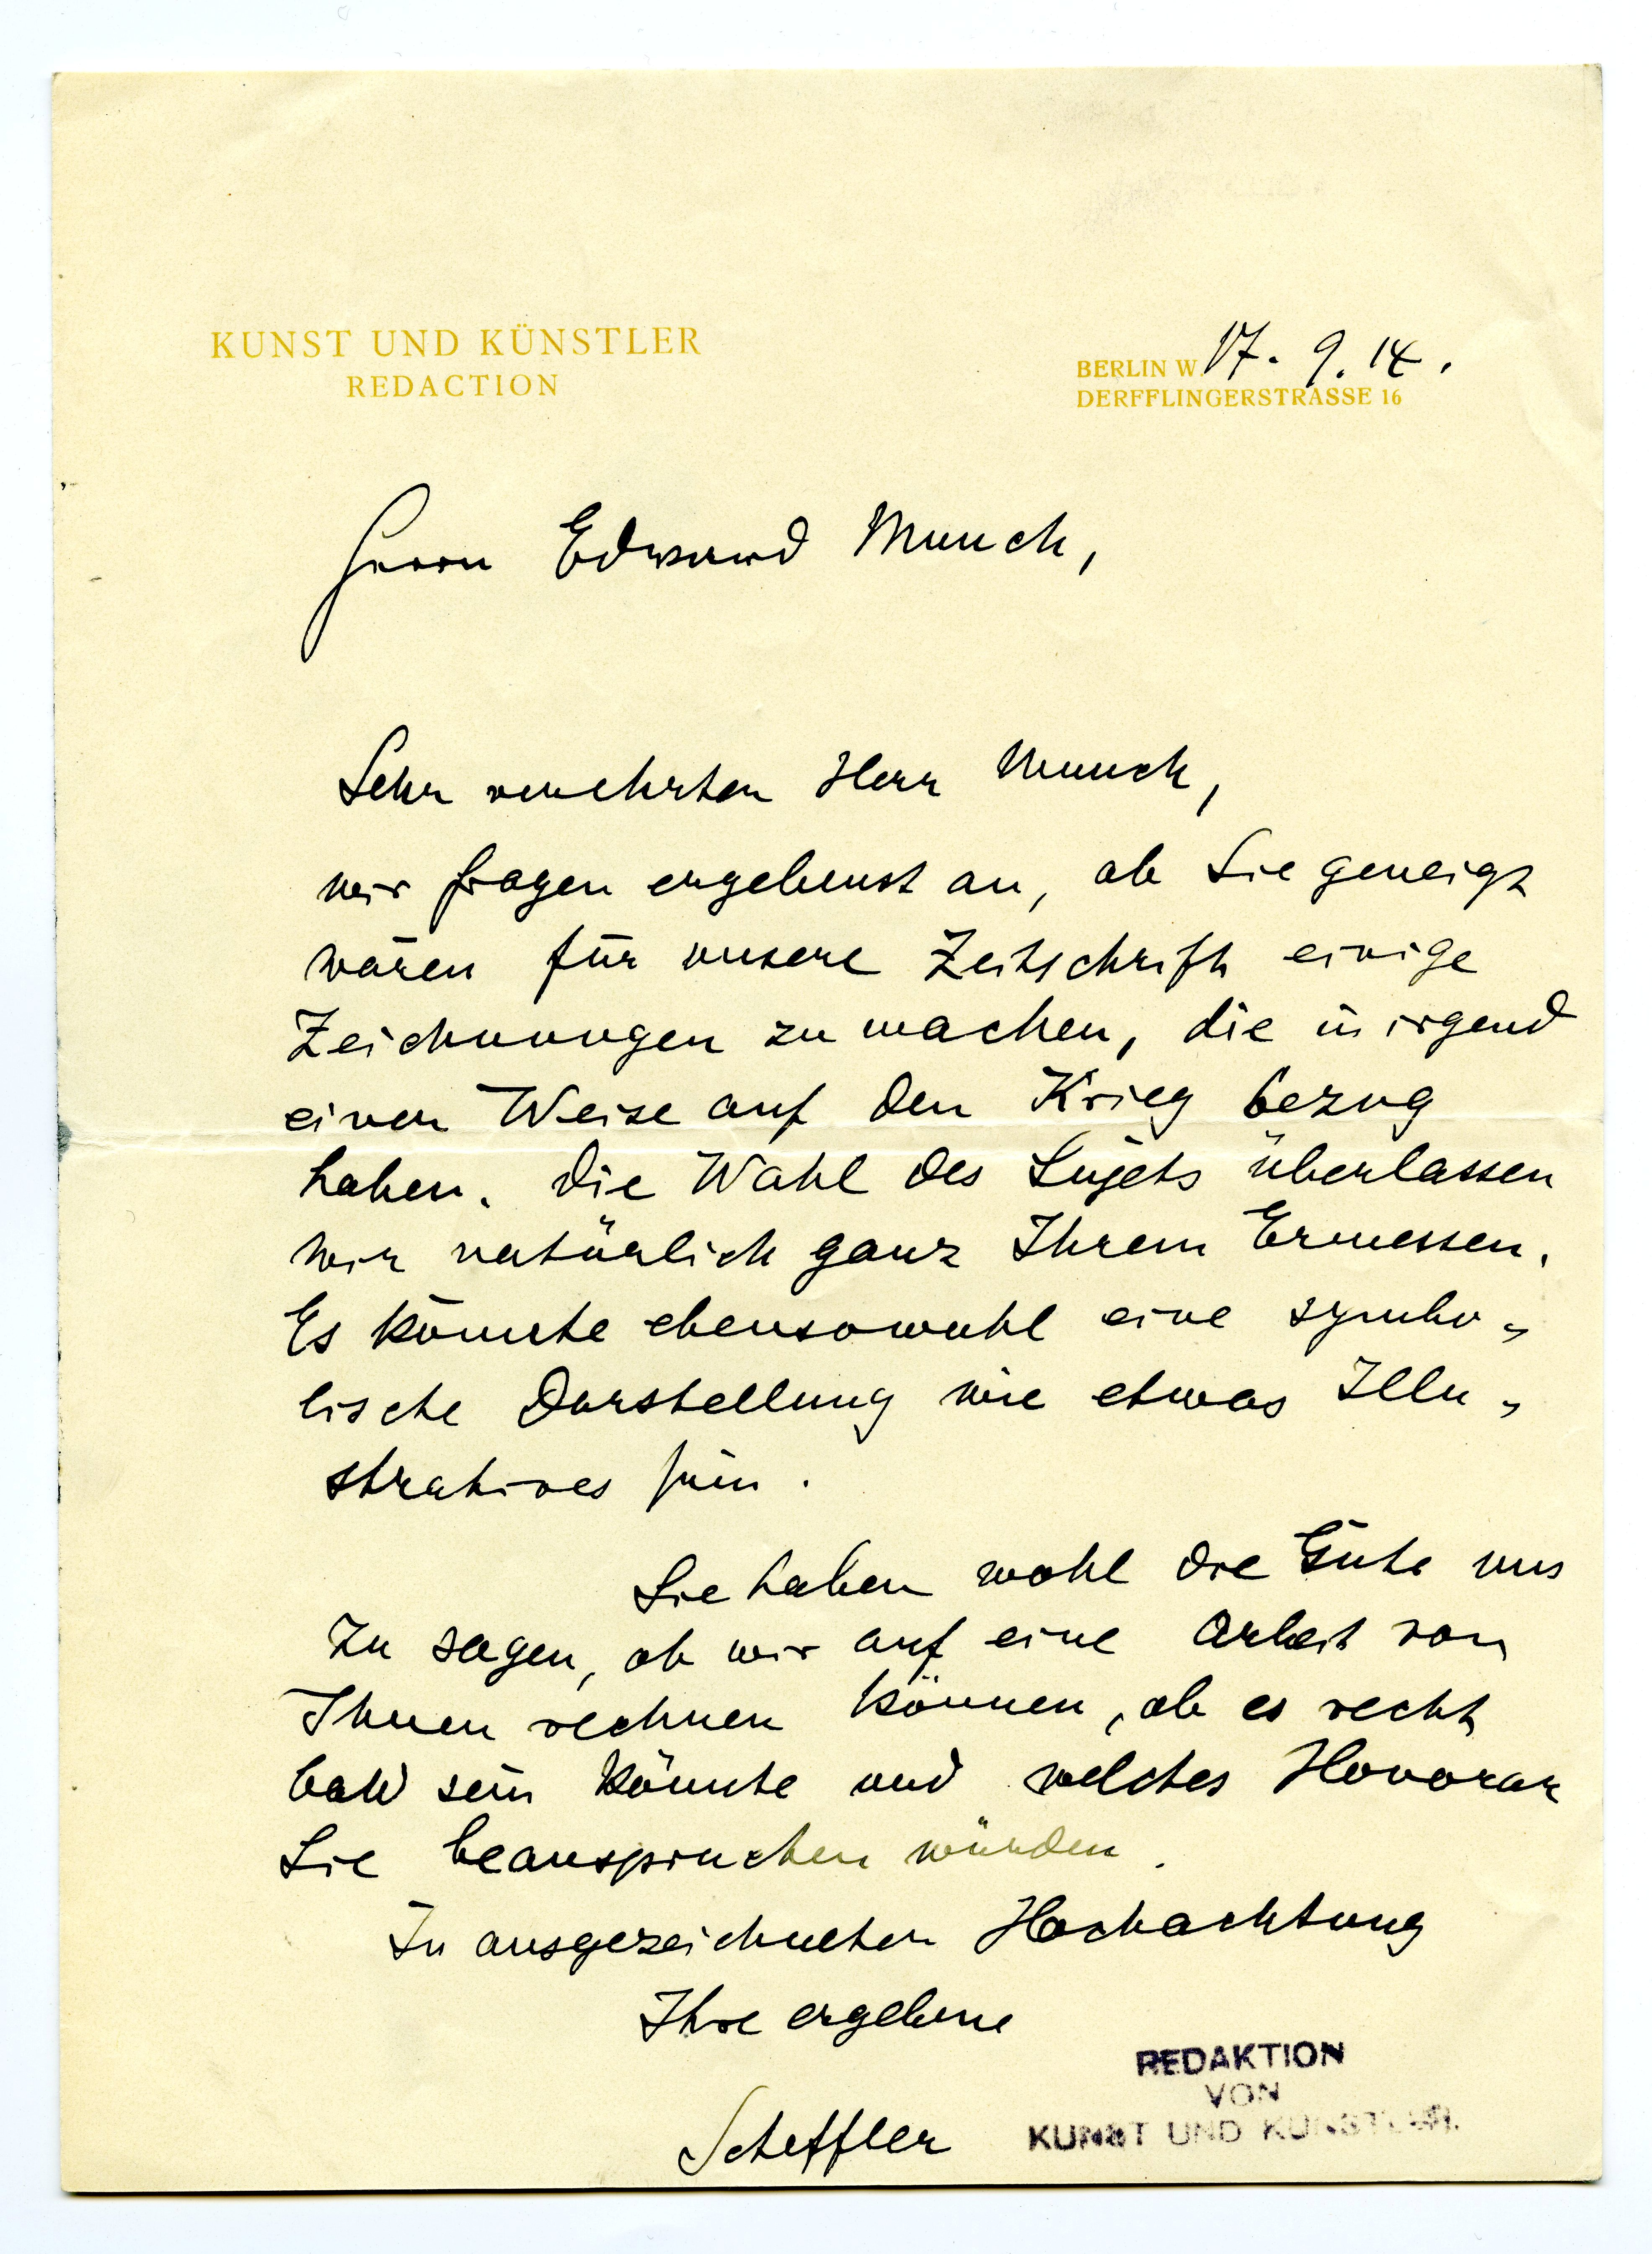 KUNST UND KÜNSTLER
REDACTION
BERLIN W. 17. 9. 14.
DERFFLINGERSTRASSE 16
Herrn Edward Munch,
Sehr verehrter Herr Munch,
wir fragen ergebenst an, ob Sie geneigt
wären für unsere Zeitschrift einige
Zeichnungen zu machen, die in irgend
einer Weise auf den Krieg bezug
haben. Die Wahl des Sujets überlassen
wir natürlich ganz Ihrem Ermessen.
Es könnte ebensowohl eine symbo-
lische Darstellung wie etwas Illu-
stratives sein.
Sie haben wohl die Güte uns
zu sagen, ob wir auf eine Arbeit von
Ihnen rechnen können, ob es recht
bald sein könnte und welches Honorar
Sie beanspruchen würden.
In ausgezeichneter Hochachtung
Ihre ergebene
Scheffler
REDAKTION
VON
KUNST UND KÜNSTLER.